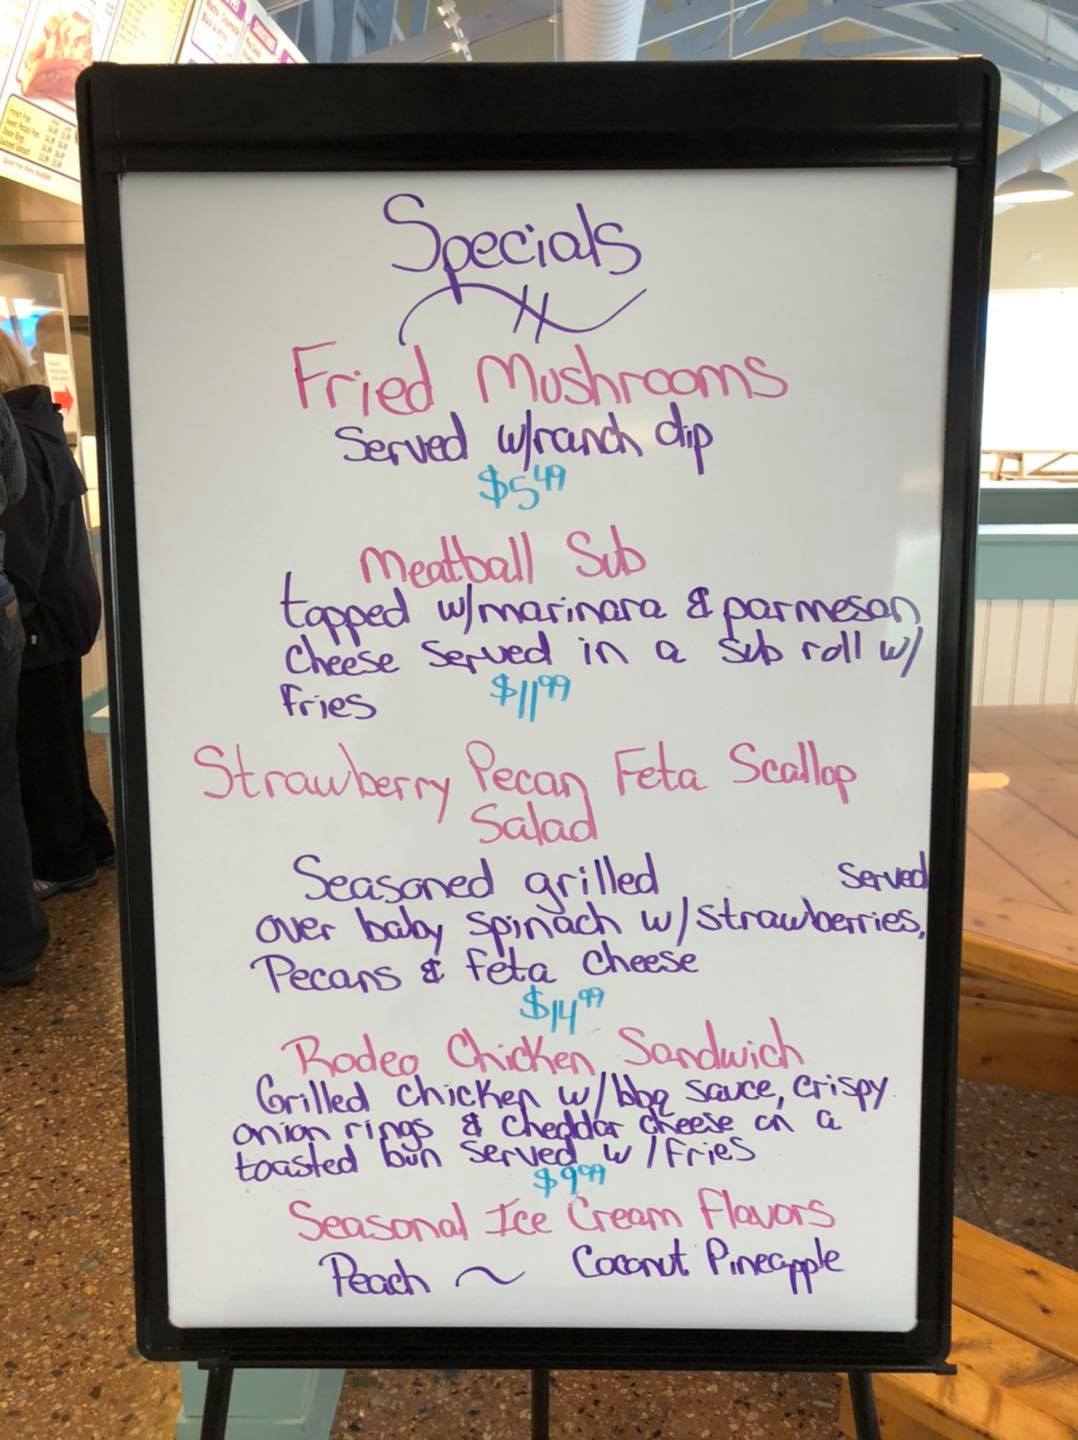 Specials
Fried Mushrooms
Served w/ranch dip
$5.49
Meatball Sub
topped w/marinara & parmesan
cheese served in a sub roll w/
fries $11.99
Strawberry Pecan Feta Scallop
Salad
Seasoned grilled served
over baby spinach w/strawberries,
Pecans & feta cheese
$14.99
Rodeo Chicken Sandwich
Grilled chicken w/bbq sauce, crispy
onion rings & cheddar cheese on a
toasted bun served w/fries
$9.99
Seasonal Ice Cream Flavors
Peach ~ Coconut Pineapple